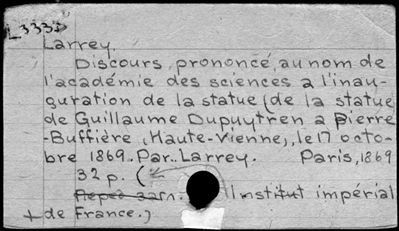 L3333
Larrey.
Discours, prononcé, au nom de
l'académie des sciences a l'inau-
guration de la statue (de la statue
de Guillaume Dupuytren a Pierre
-Buffière, (Haute-Vienne), le 17 octo-
bre 1869. Par.. Larrey. Paris, 1869
32 p. (
Institut impérial
de France.)